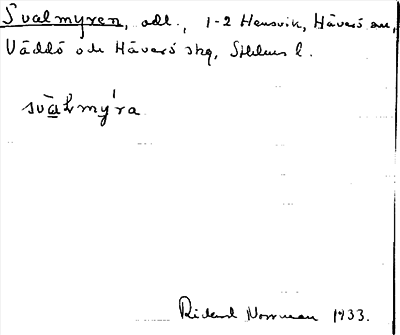 Svalmyren, odl., 1-2 Hensvik, Häverö sn,
Väddö och Häverö skg, Sthlms l.
svàlmýra
Rickard Norrman 1933.